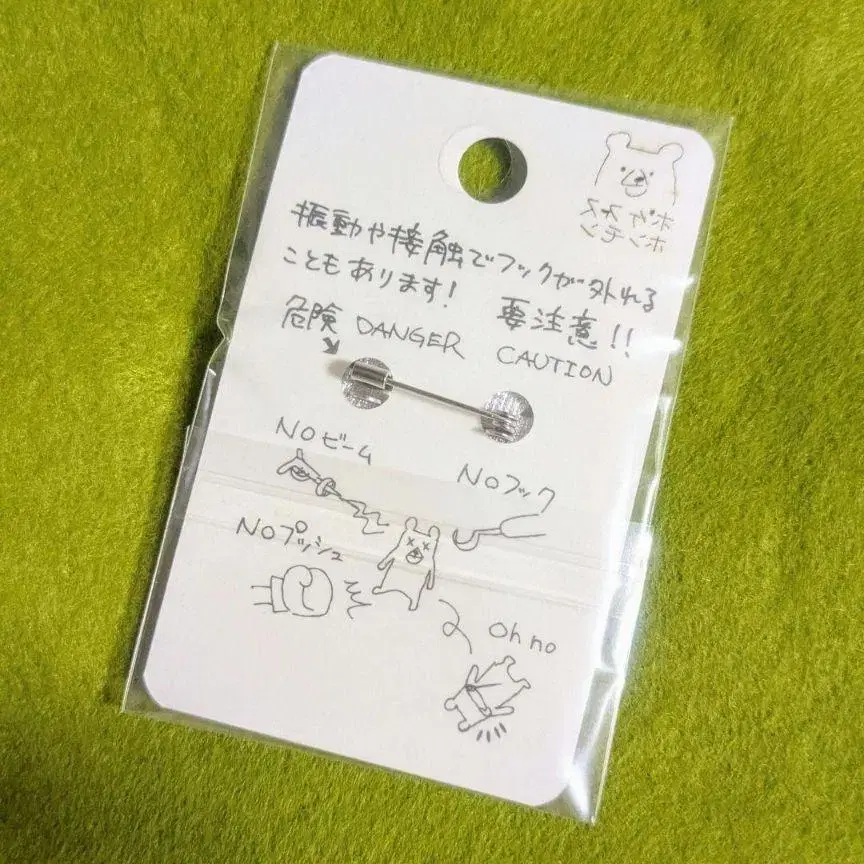 振動や接触でフックが外れる
こともあります! 要注意!!
危険 DANGER CAUTION
NOビーム
NOフック
NOプッシュ
Oh no